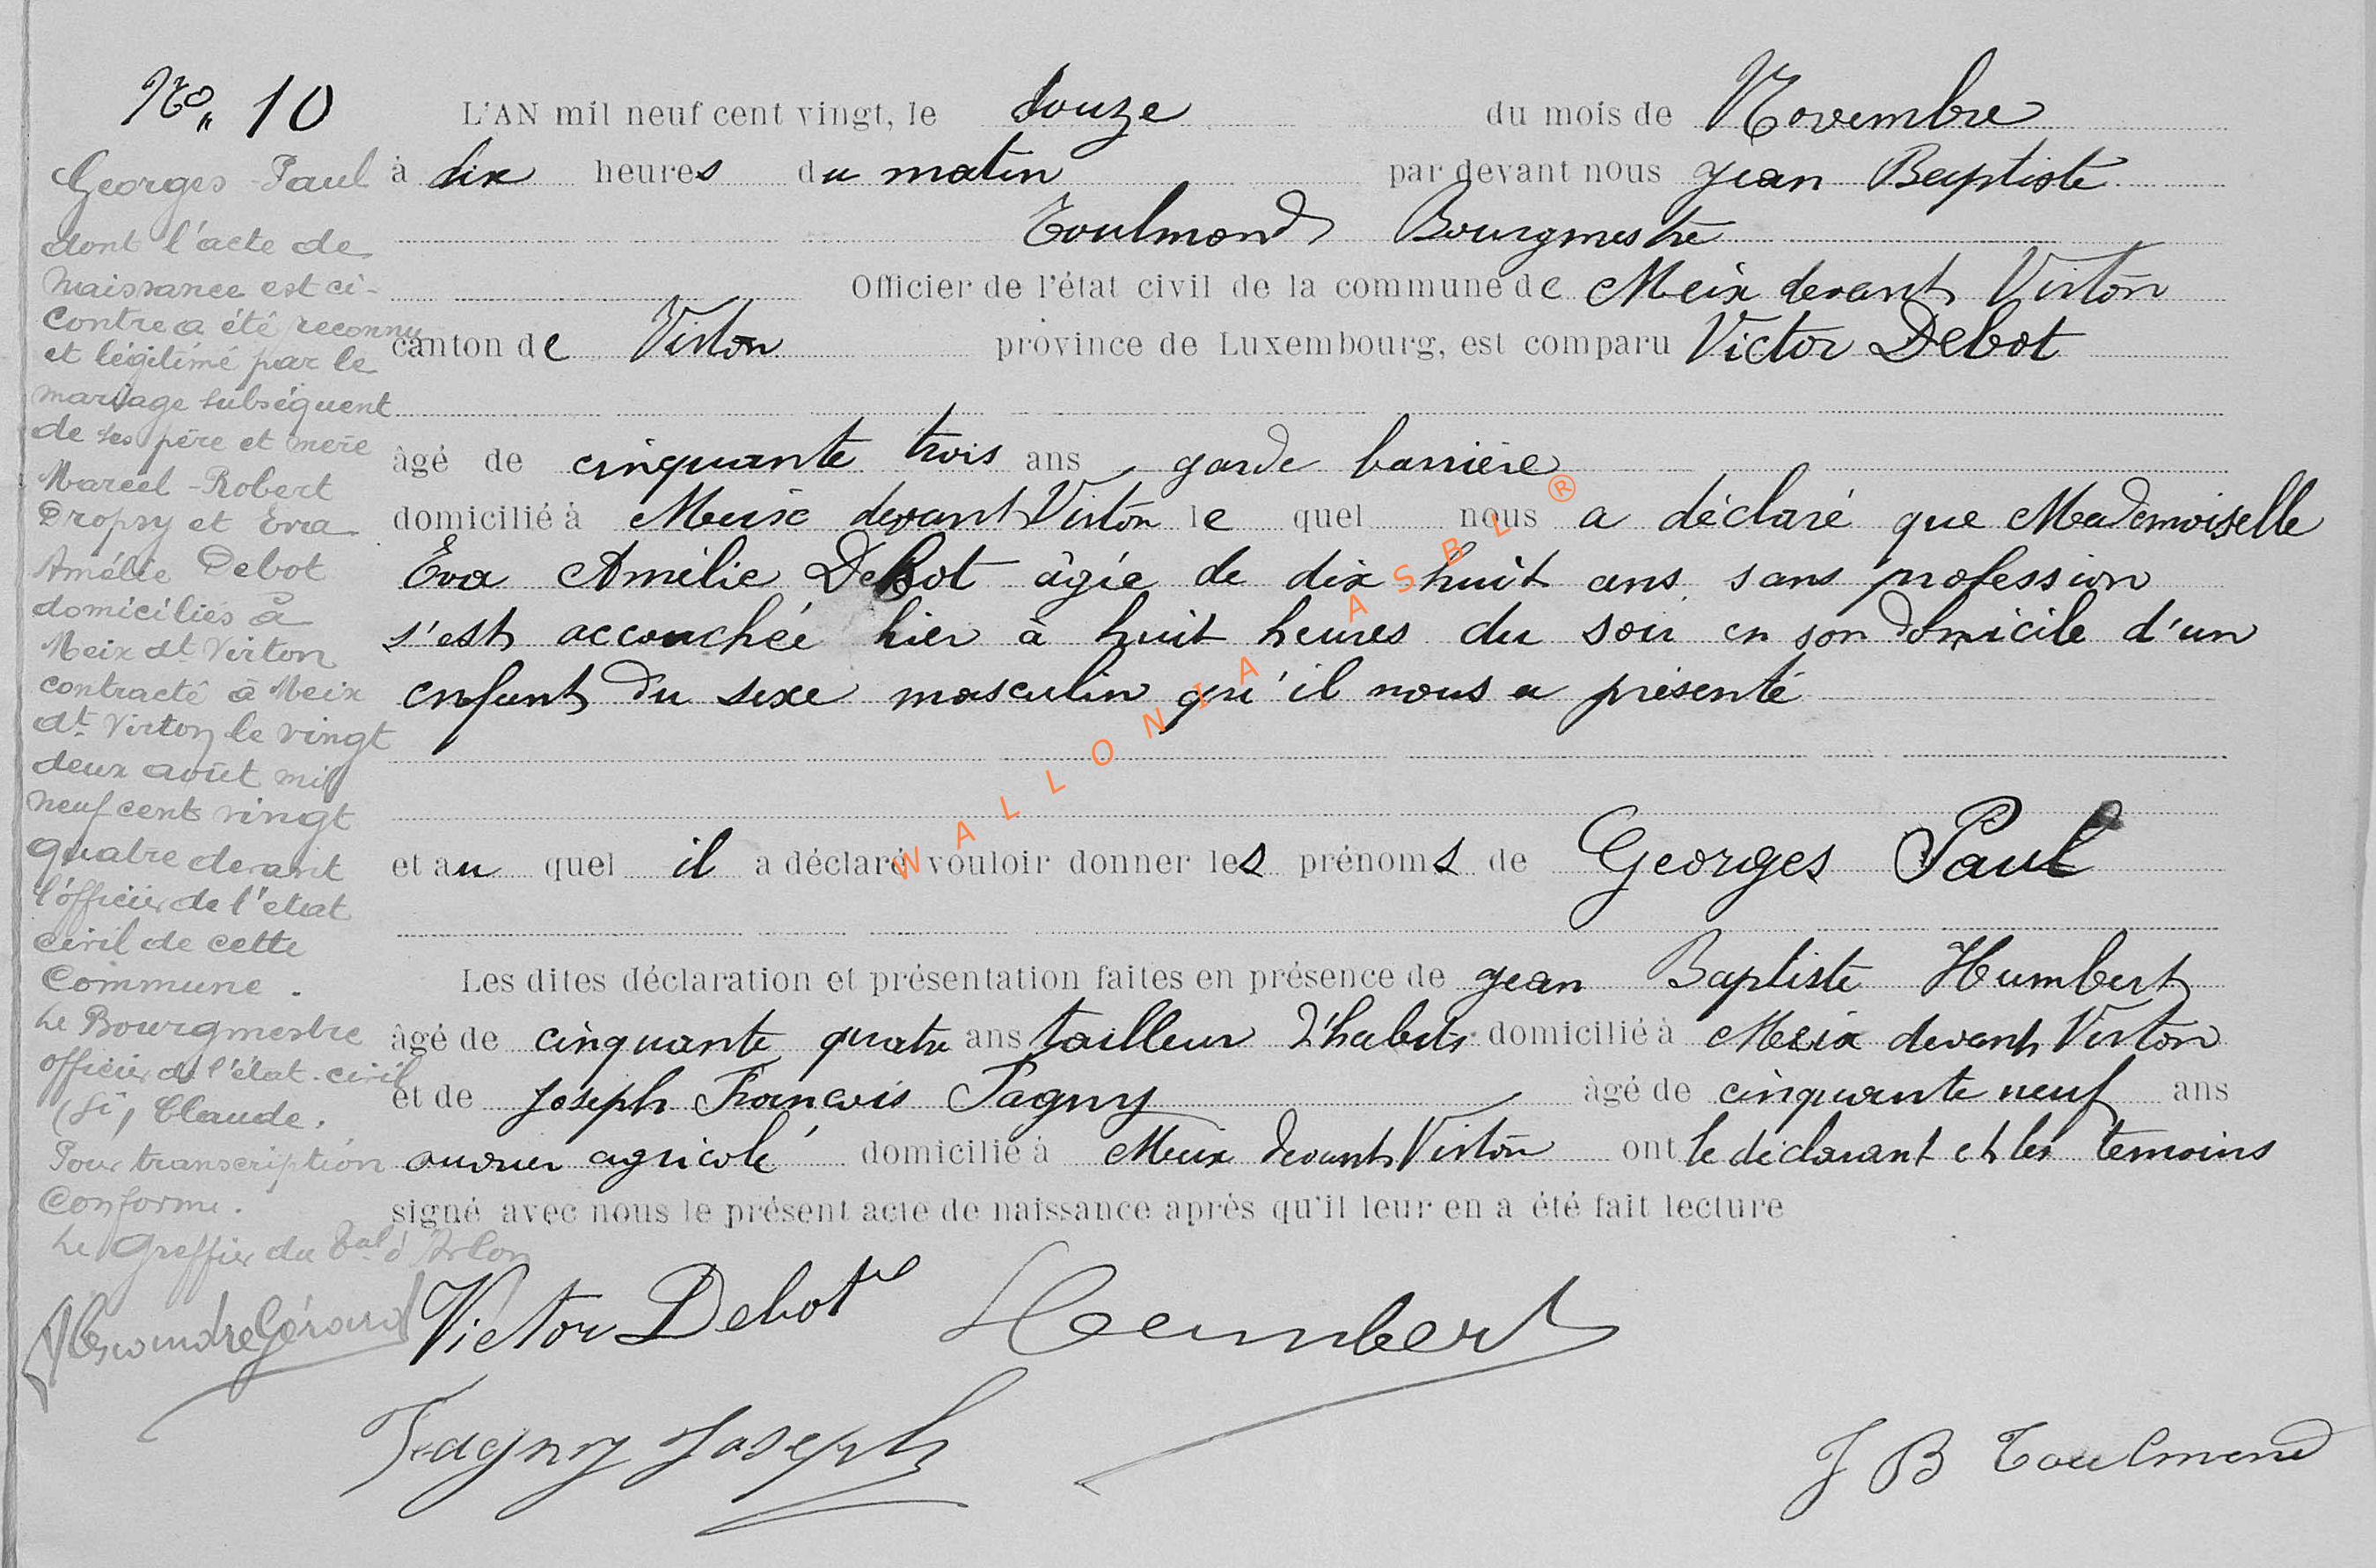 No. 10
L'AN mil neuf cent vingt, le douze du mois de Novembre
à dix heures du matin par devant nous Jean Baptiste
Toulmond Bourgmestre
Officier de l'état civil de la commune de Meix devant Virton
canton de Virton province de Luxembourg, est comparu Victor Debot
âgé de cinquante trois ans, garde barrière
domicilié à Meix devant Virton le quel nous a déclaré que Mademoiselle
Eva Amélie Debot âgée de dix huit ans, sans profession
s'est accouchée hier à huit heures du soir en son domicile d'un
enfant du sexe masculin qu'il nous a présenté
et au quel il a déclaré vouloir donner les prénoms de Georges Paul
Les dites déclaration et présentation faites en présence de Jean Baptiste Humbert
âgé de cinquante quatre ans tailleur d'habits domicilié à Meix devant Virton
et de Joseph François Fagny âgé de cinquante neuf ans
ouvrier agricole domicilié à Meix devant Virton ont le déclarant et les témoins
signé avec nous le présent acte de naissance après qu'il leur en a été fait lecture
Victor Debot Humbert
Fagny Joseph
J B Toulmond
Georges-Paul
dont l'acte de
naissance est ci-
contre a été reconnu
et légitimé par le
mariage subséquent
de ses père et mère
Marcel-Robert
Dropsy et Eva
Amélie Debot
domiciliés à
Meix dt Virton
contracté à Meix
dt Virton le vingt
deux août mil
neuf cent vingt
quatre devant
l'officier de l'état
civil de cette
Commune.
Le Bourgmestre
officier de l'état-civil
(sé) Claude.
Pour transcription
Conforme.
Le Greffier du Tal d'Arlon
Alexandre Gérard
WALLONIA ASBL ®